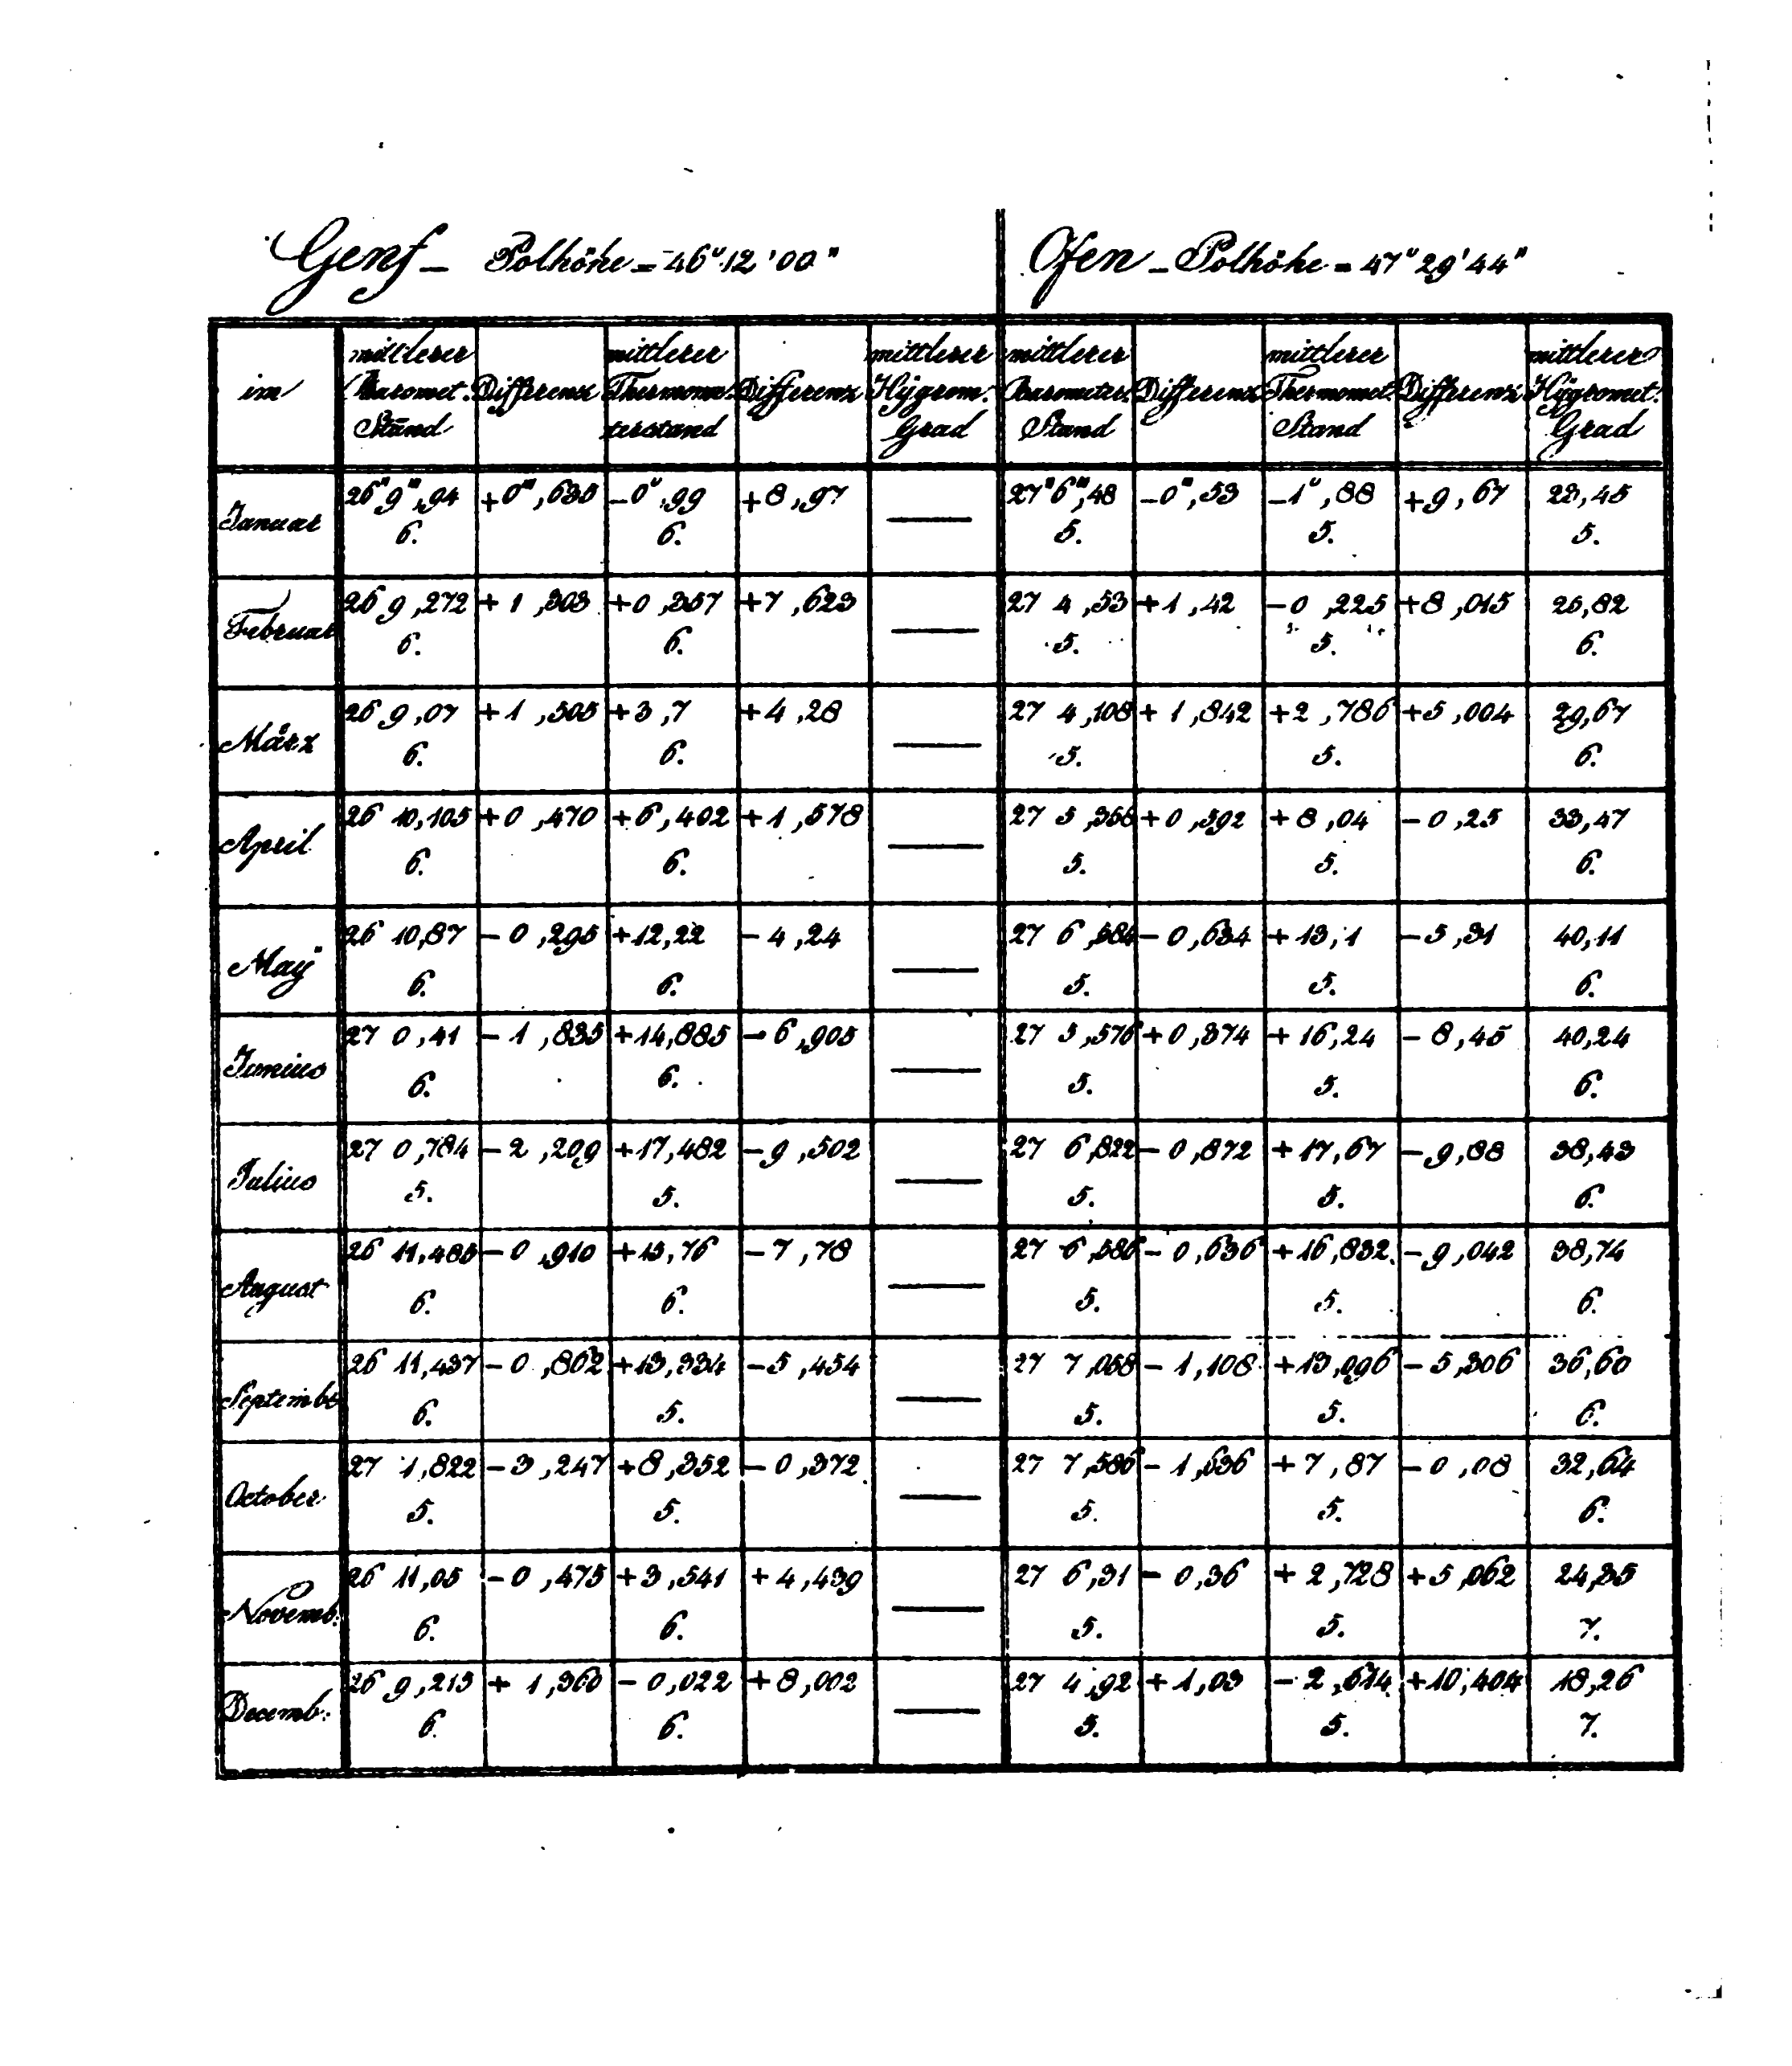 Genf – Polhöhe = 46° 12' 00"
Ofen – Polhöhe = 47° 29' 44"
im mittlerer Baromet. Stand Differenz mittlerer Thermome- terstand Differenz mittlerer Hÿgrom. Grad mittlerer Barometer. Stand Differenz mittlerer Thermomet. Stand Differenz mittlerer Hÿgromet. Grad
Januar 26" 9''',94 +0''',635 –0°,99 +8,97 — 27" 6''',48 –0''',53 –1°,88 +9,67 23,45
6. 6. 5. 5. 5.
Februar 26 9,272 +1,303 +0,357 +7,623 — 27 4,53 +1,42 –0,225 +8,015 25,82
6. 6. 5. 5. 6.
März 26 9,07 +1,505 +3,7 +4,28 — 27 4,108 +1,842 +2,786 +5,004 29,67
6. 6. 5. 5. 6.
April 26 10,105 +0,470 +6,402 +1,578 — 27 5,358 +0,592 +8,04 –0,25 33,47
6. 6. 5. 5. 6.
Maÿ 26 10,87 –0,295 +12,22 –4,24 — 27 6,584 –0,634 +13,1 –5,31 40,11
6. 6. 5. 5. 6.
Junius 27 0,41 –1,835 +14,885 –6,905 — 27 5,576 +0,374 +16,24 –8,45 40,24
6. 6. 5. 5. 6.
Julius 27 0,784 –2,209 +17,482 –9,502 — 27 6,822 –0,872 +17,67 –9,88 38,43
5. 5. 5. 5. 6.
August 26 11,485 –0,910 +15,76 –7,78 — 27 6,586 –0,636 +16,832 –9,042 38,74
6. 6. 5. 5. 6.
Septembr 26 11,437 –0,862 +13,334 –5,454 — 27 7,058 –1,108 +13,096 –5,306 36,60
6. 5. 5. 5. 6.
October 27 1,822 –3,247 +8,352 –0,372 — 27 7,586 –1,636 +7,87 –0,08 32,64
5. 5. 5. 5. 6.
Novemb. 26 11,05 –0,475 +3,541 +4,439 — 27 6,31 –0,36 +2,728 +5,062 24,35
6. 6. 5. 5. 7.
Decemb. 26 9,215 +1,360 –0,022 +8,002 — 27 4,92 +1,03 –2,614 +10,404 18,26
6. 6. 5. 5. 7.